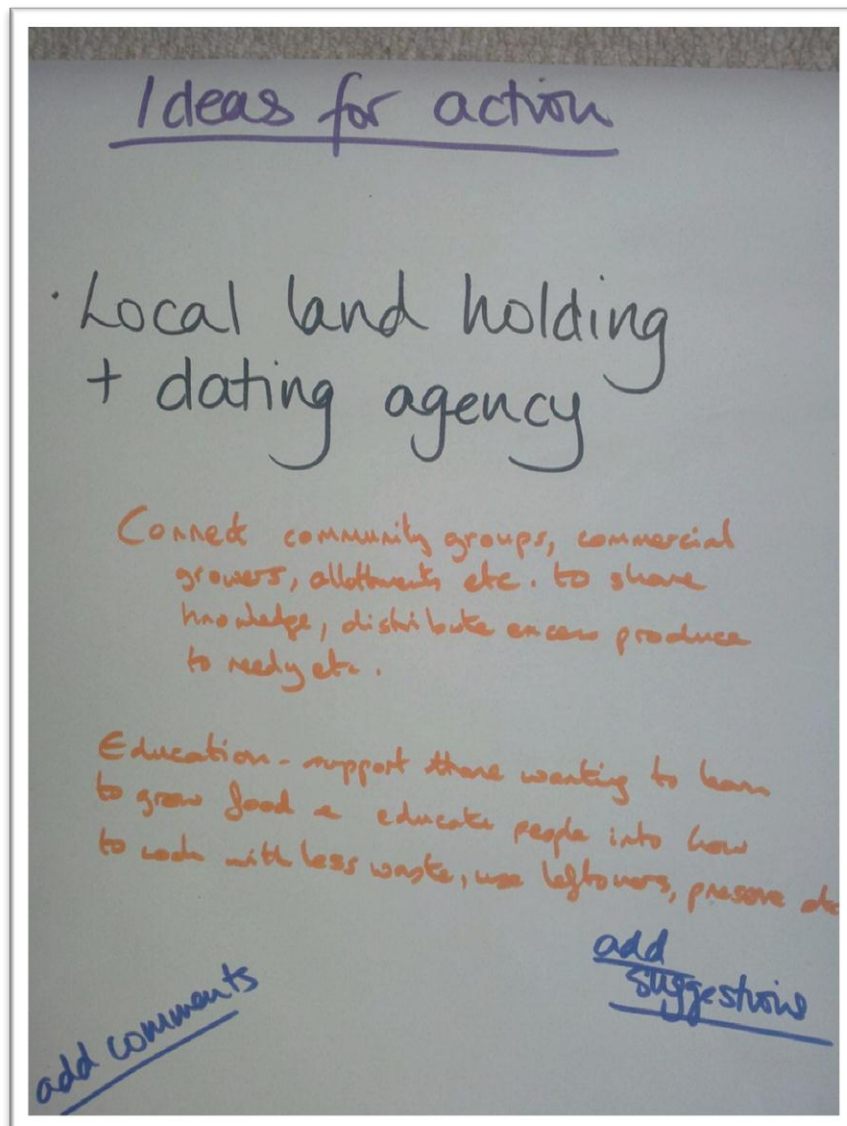 Ideas for action
· Local land holding
+ dating agency
Connect community groups, commercial
growers, allotments etc. to share
knowledge, distribute excess produce
to needy etc.
Education - support those wanting to learn
to grow food & educate people into how
to cook with less waste, use leftovers, preserve etc
add
suggestions
add comments